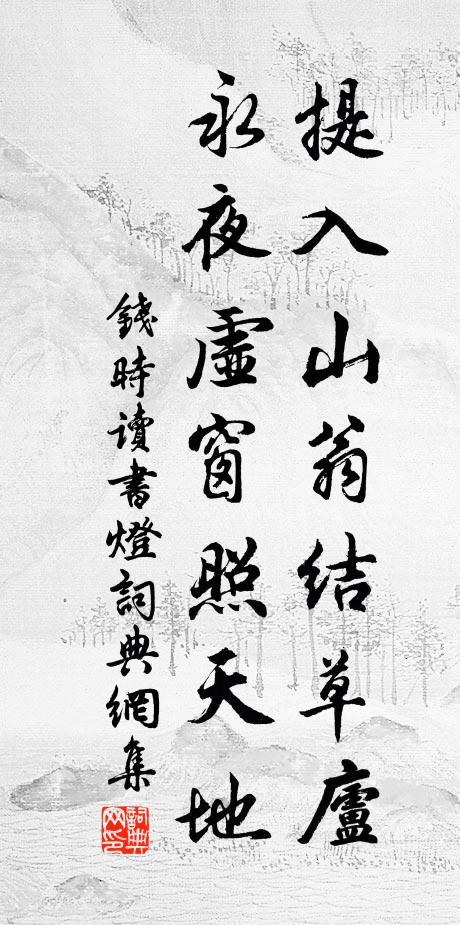 提入山翁结草廬
永夜虛窗照天地
錢時讀書燈詞典網集
詞典网印